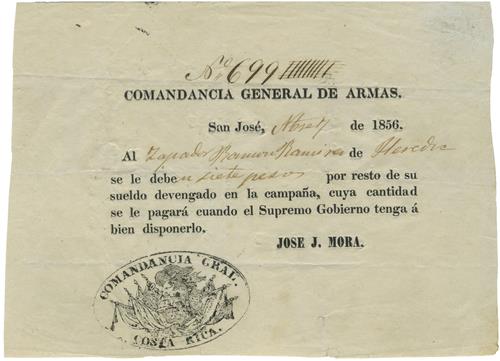 No. 699
COMANDANCIA GENERAL DE ARMAS.
San José, de 1856.
Al Zapador Ramon Ramirez de Heredia
se le debe siete pesos por resto de su
sueldo devengado en la campaña, cuya cantidad
se le pagará cuando el Supremo Gobierno tenga á
bien disponerlo.
JOSE J. MORA.
COMANDANCIA GRAL.
COSTA RICA.